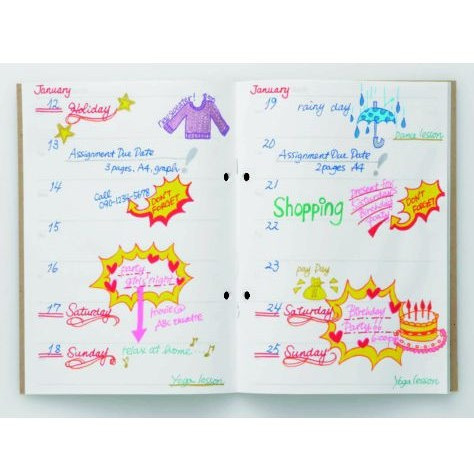 January
12 Holiday
new sweater!
13
Assignment Due Date
3 pages, A4, graph
14
Call
090-1234-5678
DON'T
FORGET
15
16
party
girls' night
17 Saturday
movie@
ABC theatre
18 Sunday
relax at home
Yoga lesson
January
19 rainy day
Dance lesson
20
Assignment Due Date
2 pages A4
21
present for
Saturday's
Birthday
Party
DON'T
FORGET
Shopping
22
23
pay Day
24 Saturday
Birthday
Party
6:00pm
25 Sunday
Yoga lesson